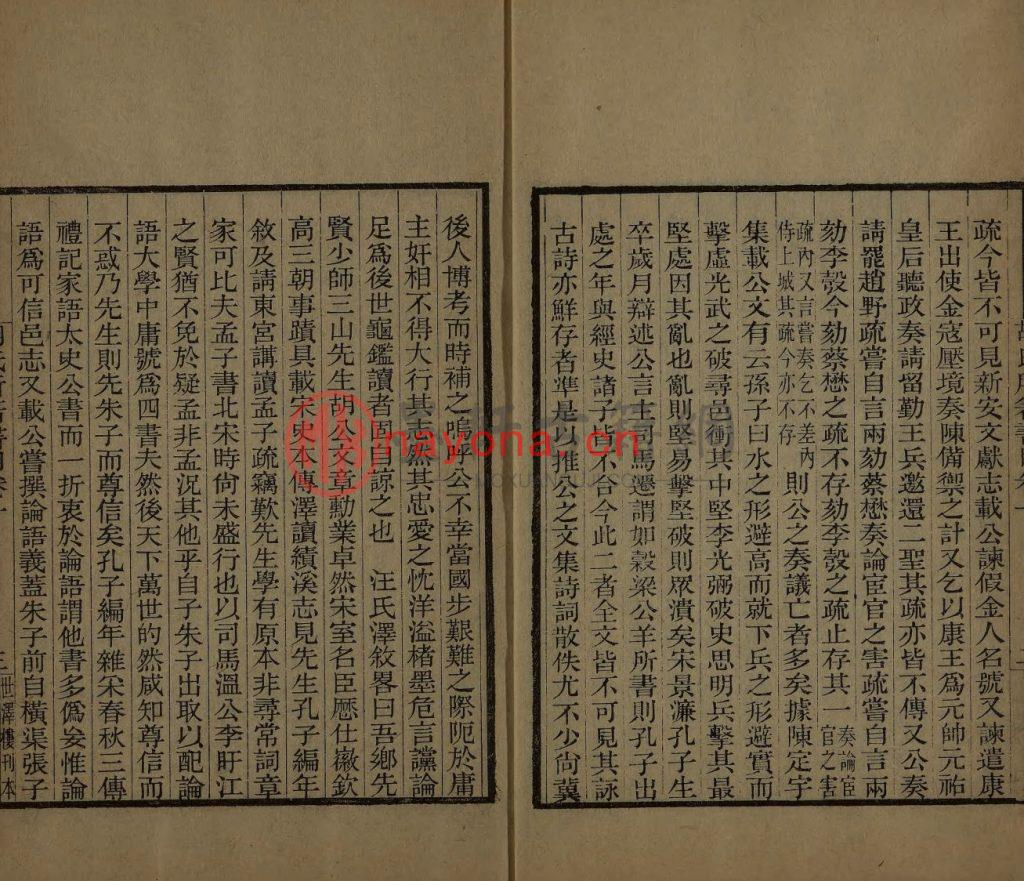 疏今皆不可見新安文獻志載公諫假金人名號又諫遣康
王出使金寇壓境奏陳備禦之計又乞以康王爲元帥元祐
皇后聽政奏請留勤王兵邀還二聖其疏亦皆不傳又公奏
請罷趙野疏嘗自言兩劾蔡懋奏論宦官之害疏嘗自言兩
劾李彀今劾蔡懋之疏不存劾李彀之疏止存其一奏論宦官之害
疏內又言嘗奏乞不差內侍上城其疏今亦不存則公之奏議亡者多矣據陳定宇
集載公文有云孫子曰水之形避高而就下兵之形避實而
擊虛光武之破尋邑衝其中堅李光弼破史思明兵擊其最
堅處因其亂也亂則堅易擊堅破則眾潰矣宋景濂孔子生
卒歲月辯述公言生同馬遷謂如穀梁公羊所書則孔子出
處之年與經史諸子皆不合今此二者全文皆不可見其詠
古詩亦鮮存者準是以推公之文集詩詞散佚尤不少尙冀
後人博考而時補之嗚乎公不幸當國步艱難之際阨於庸
主奸相不得大行其志然其忠愛之忱洋溢楮墨危言讜論
足爲後世龜鑑讀者固自諒之也 汪氏澤敘畧曰吾鄉先
賢少師三山先生胡公文章勳業卓然宋室名臣歷仕徽欽
高三朝事蹟具載宋史本傳澤讀績溪志見先生孔子編年
敘及請東宮講讀孟子疏竊歎先生學有原本非尋常詞章
家可比夫孟子書北宋時尙未盛行也以司馬溫公李旴江
之賢猶不免於疑孟非孟況其他乎自子朱子出取以配論
語大學中庸號爲四書夫然後天下萬世的然咸知尊信而
不惑乃先生則先朱子而尊信矣孔子編年雜采春秋三傳
禮記家語太史公書而一折衷於論語謂他書多僞妄惟論
語爲可信邑志又載公嘗撰論語義蓋朱子前自橫渠張子
三 世澤樓刊本
nayona.cn